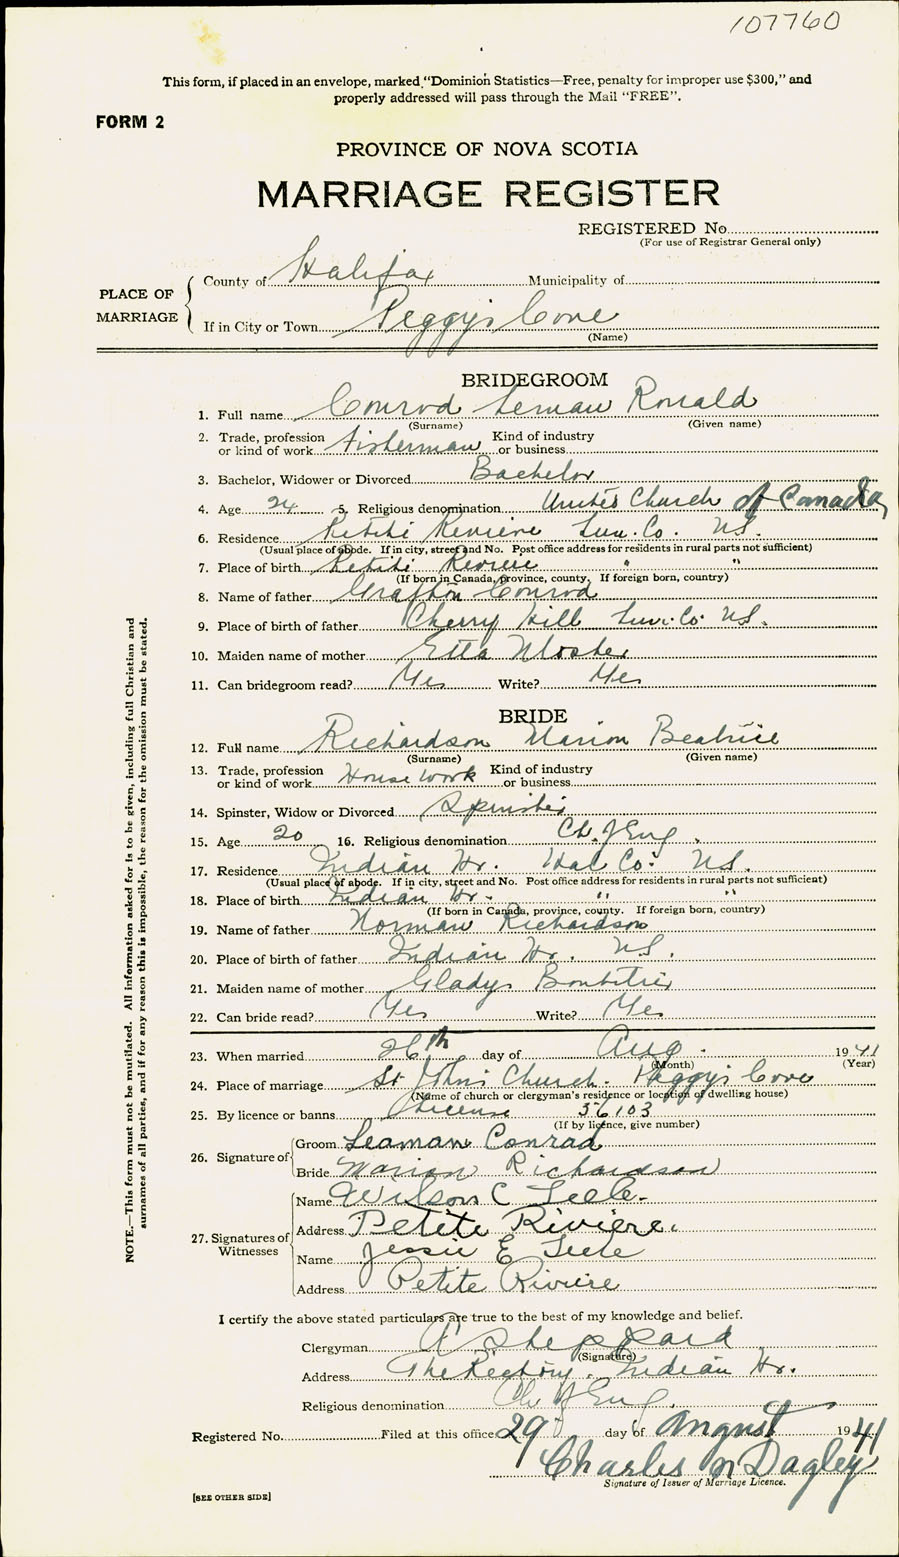 107760
This form, if placed in an envelope, marked "Dominion Statistics—Free, penalty for improper use $300," and
properly addressed will pass through the Mail "FREE".
FORM 2
PROVINCE OF NOVA SCOTIA
MARRIAGE REGISTER
REGISTERED No.
(For use of Registrar General only)
PLACE OF MARRIAGE
County of Halifax Municipality of
If in City or Town Peggy's Cove
(Name)
BRIDEGROOM
1. Full name Conrod Leman Ronald
(Surname) (Given name)
2. Trade, profession or kind of work Fisherman Kind of industry or business
3. Bachelor, Widower or Divorced Bachelor
4. Age 24 5. Religious denomination United Church of Canada
6. Residence Petite Reviere Lun. Co. N.S.
(Usual place of abode. If in city, street and No. Post office address for residents in rural parts not sufficient)
7. Place of birth Petite Reviere " "
(If born in Canada, province, county. If foreign born, country)
8. Name of father Grafton Conrod
9. Place of birth of father Cherry Hill Lun. Co. N.S.
10. Maiden name of mother Etta Mosher
11. Can bridegroom read? Yes Write? Yes
BRIDE
12. Full name Richardson Marion Beatrice
(Surname) (Given name)
13. Trade, profession or kind of work House work Kind of industry or business
14. Spinster, Widow or Divorced Spinster
15. Age 20 16. Religious denomination Ch. of Eng.
17. Residence Indian Hr. Hal Co. N.S.
(Usual place of abode. If in city, street and No. Post office address for residents in rural parts not sufficient)
18. Place of birth Indian Hr. " "
(If born in Canada, province, county. If foreign born, country)
19. Name of father Norman Richardson
20. Place of birth of father Indian Hr. N.S.
21. Maiden name of mother Gladys Boutilier
22. Can bride read? Yes Write? Yes
23. When married 26th day of Aug. 1941
(Month) (Year)
24. Place of marriage St. John's Church. Peggy's Cove
(Name of church or clergyman's residence or location of dwelling house)
25. By licence or banns License 56103
(If by licence, give number)
26. Signature of Groom Leaman Conrad
Bride Marion Richardson
27. Signatures of Witnesses
Name Wilson C Teele
Address Petite Riviere.
Name Jessie E Teele
Address Petite Riviere
I certify the above stated particulars are true to the best of my knowledge and belief.
Clergyman Sheppard
(Signature)
Address The Rectory. Indian Hr.
Religious denomination Ch. of Eng.
Registered No. Filed at this office 29 day of August 1941
Charles N Dagley
Signature of Issuer of Marriage Licence.
[SEE OTHER SIDE]
NOTE.—This form must not be mutilated. All information asked for is to be given, including full Christian and
surnames of all parties, and if for any reason this is impossible, the reason for the omission must be stated.